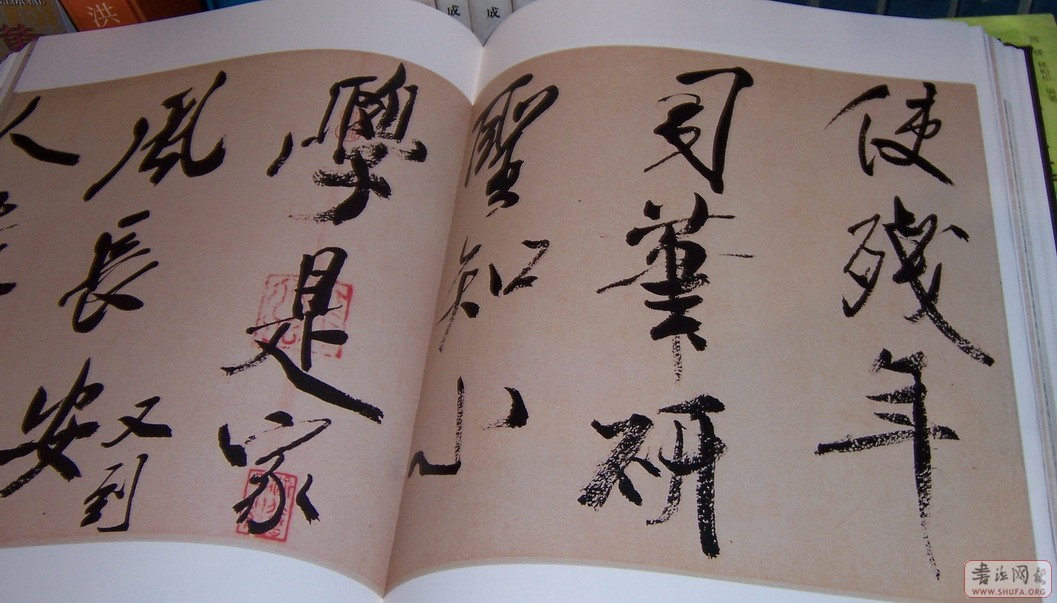 使殘年
司筆研
聖知小
學是家
風長安又到
人
洪
成
成
書法网
WWW.SHUFA.ORG